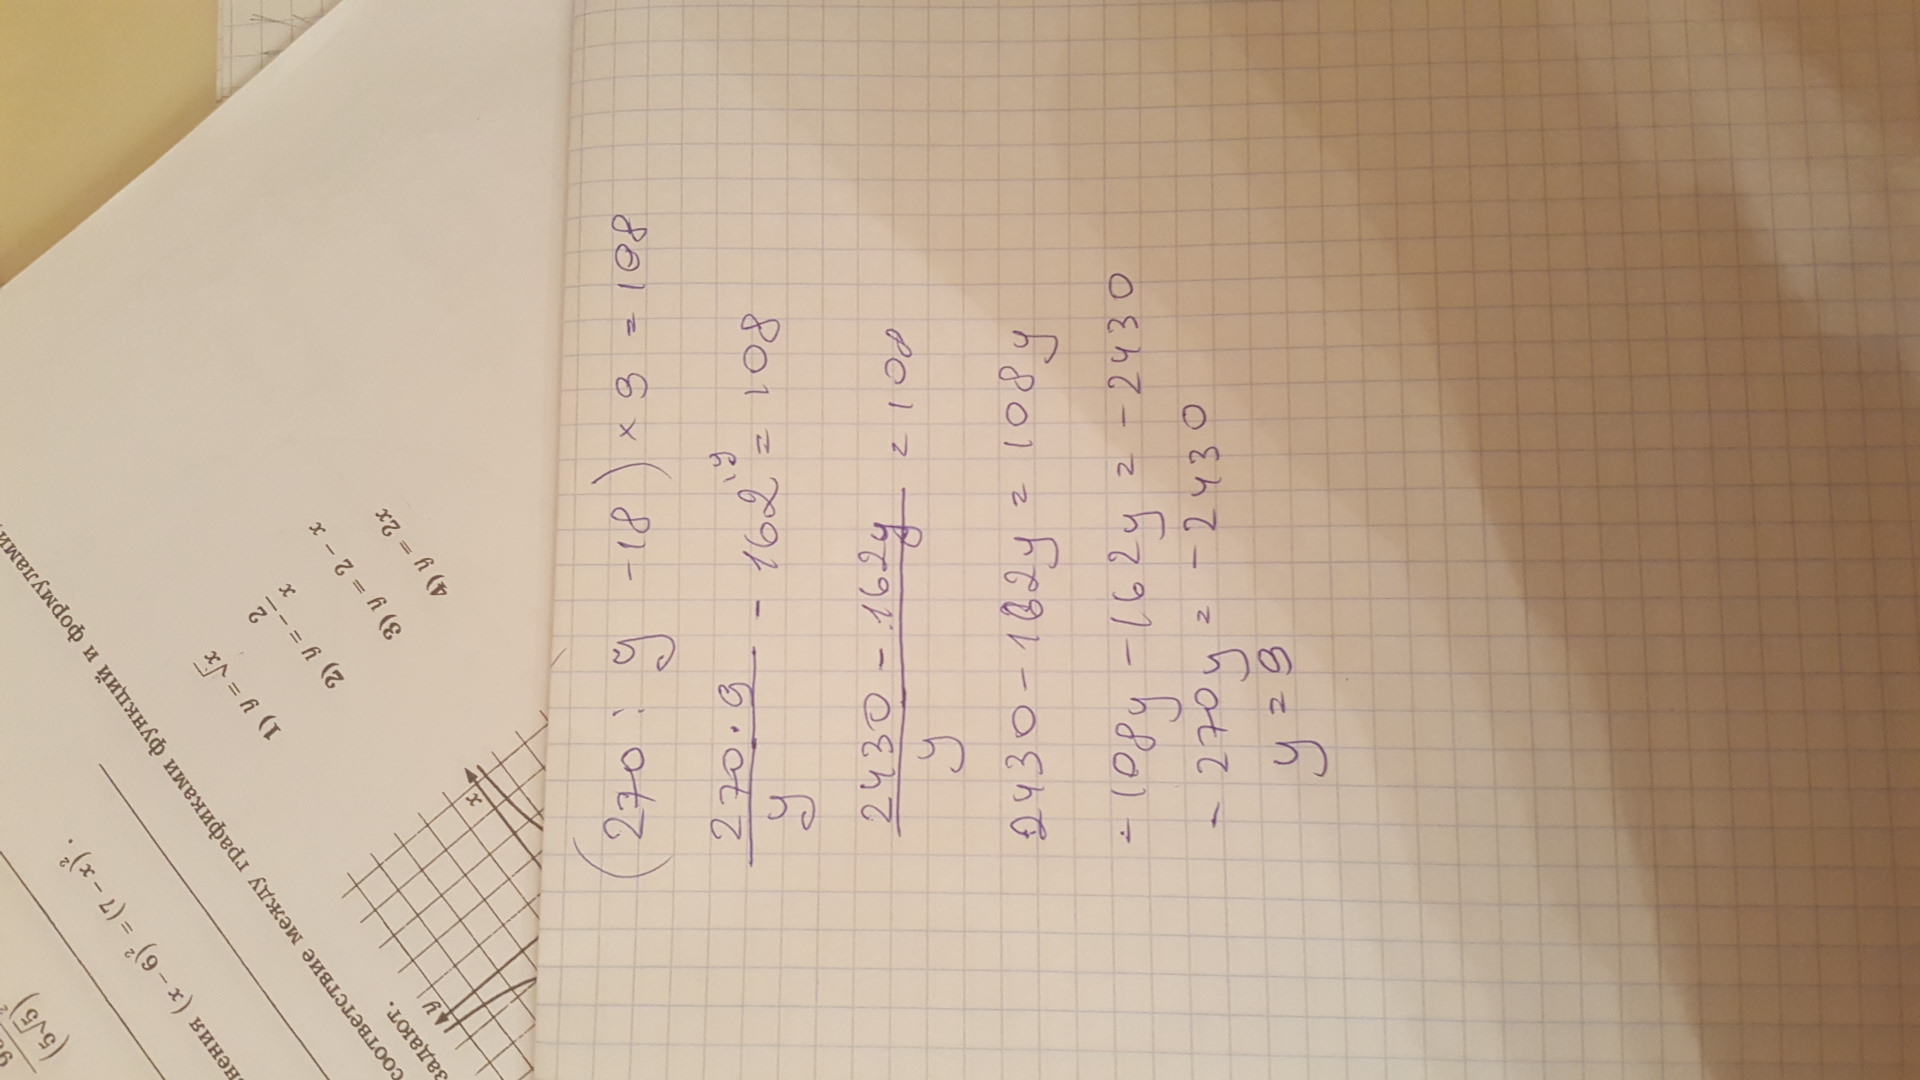 (270 : y - 18) × 9 = 108
270 · 9 / y - 162 ^{\y} = 108
2430 - 162y / y = 108
2430 - 162y = 108y
- 108y - 162y = - 2430
- 270y = - 2430
y = 9
соответствие между графиками функций и формулами,
задают.
y
x
1) y = √x
2) y = - 2/x
3) y = 2 - x
4) y = 2x
нения (x - 6)² = (7 - x)².
(5√5)²